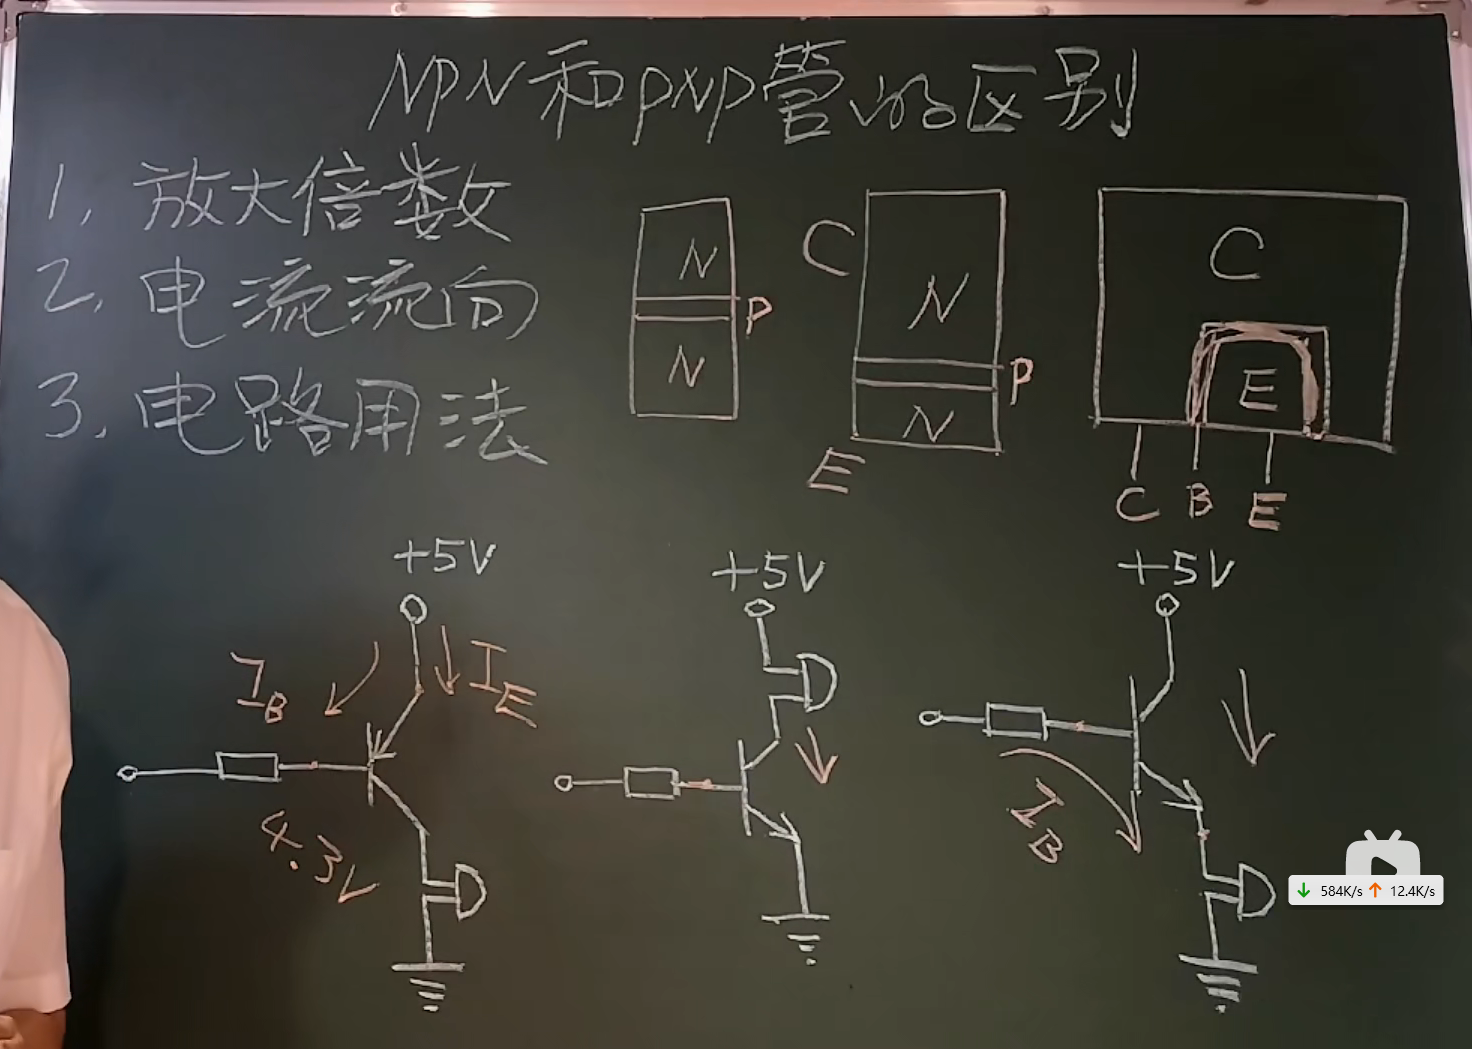 NPN和PNP管的区别
1. 放大倍数
2. 电流流向
3. 电路用法
N
P
N
C
N
P
N
E
C
E
C B E
+5V
I_B
I_E
4.3V
+5V
+5V
I_B
584K/s 12.4K/s